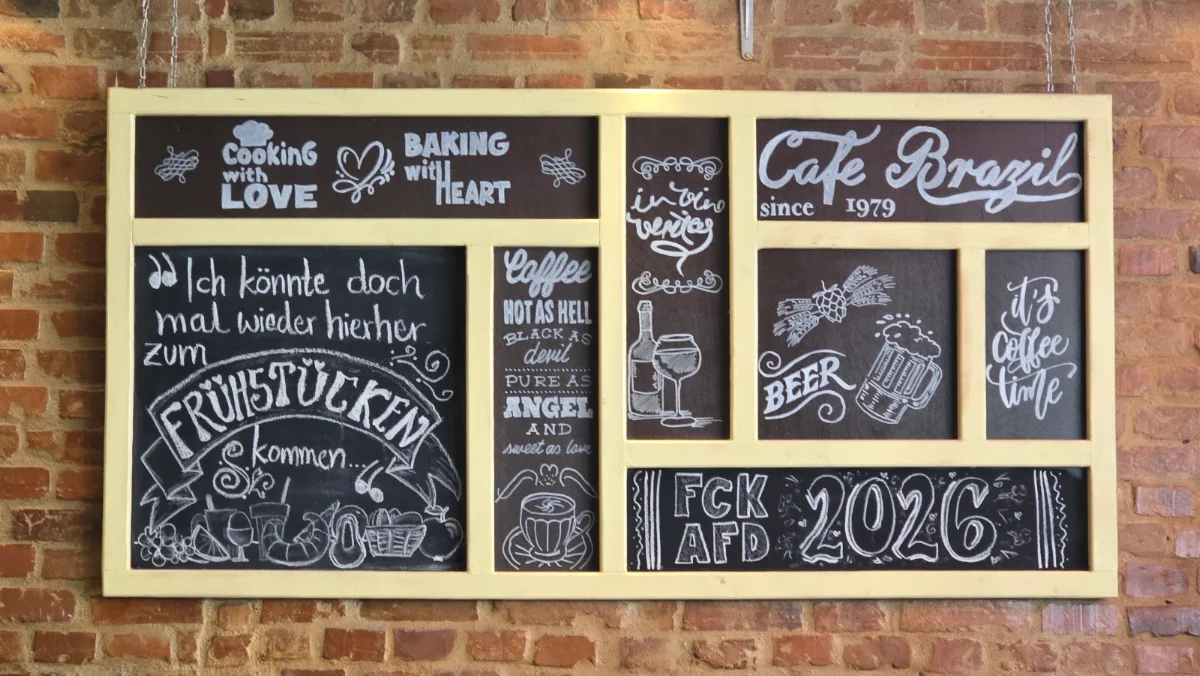 Cooking
with
LOVE
BAKING
with
HEART
in vino
veritas
Cafe Brazil
since 1979
"Ich könnte doch
mal wieder hierher
zum
FRÜHSTÜCKEN
kommen..."
Coffee
HOT AS HELL
BLACK AS
devil
PURE AS
ANGEL
AND
sweet as love
BEER
it's
coffee
time
FCK
AFD
2026